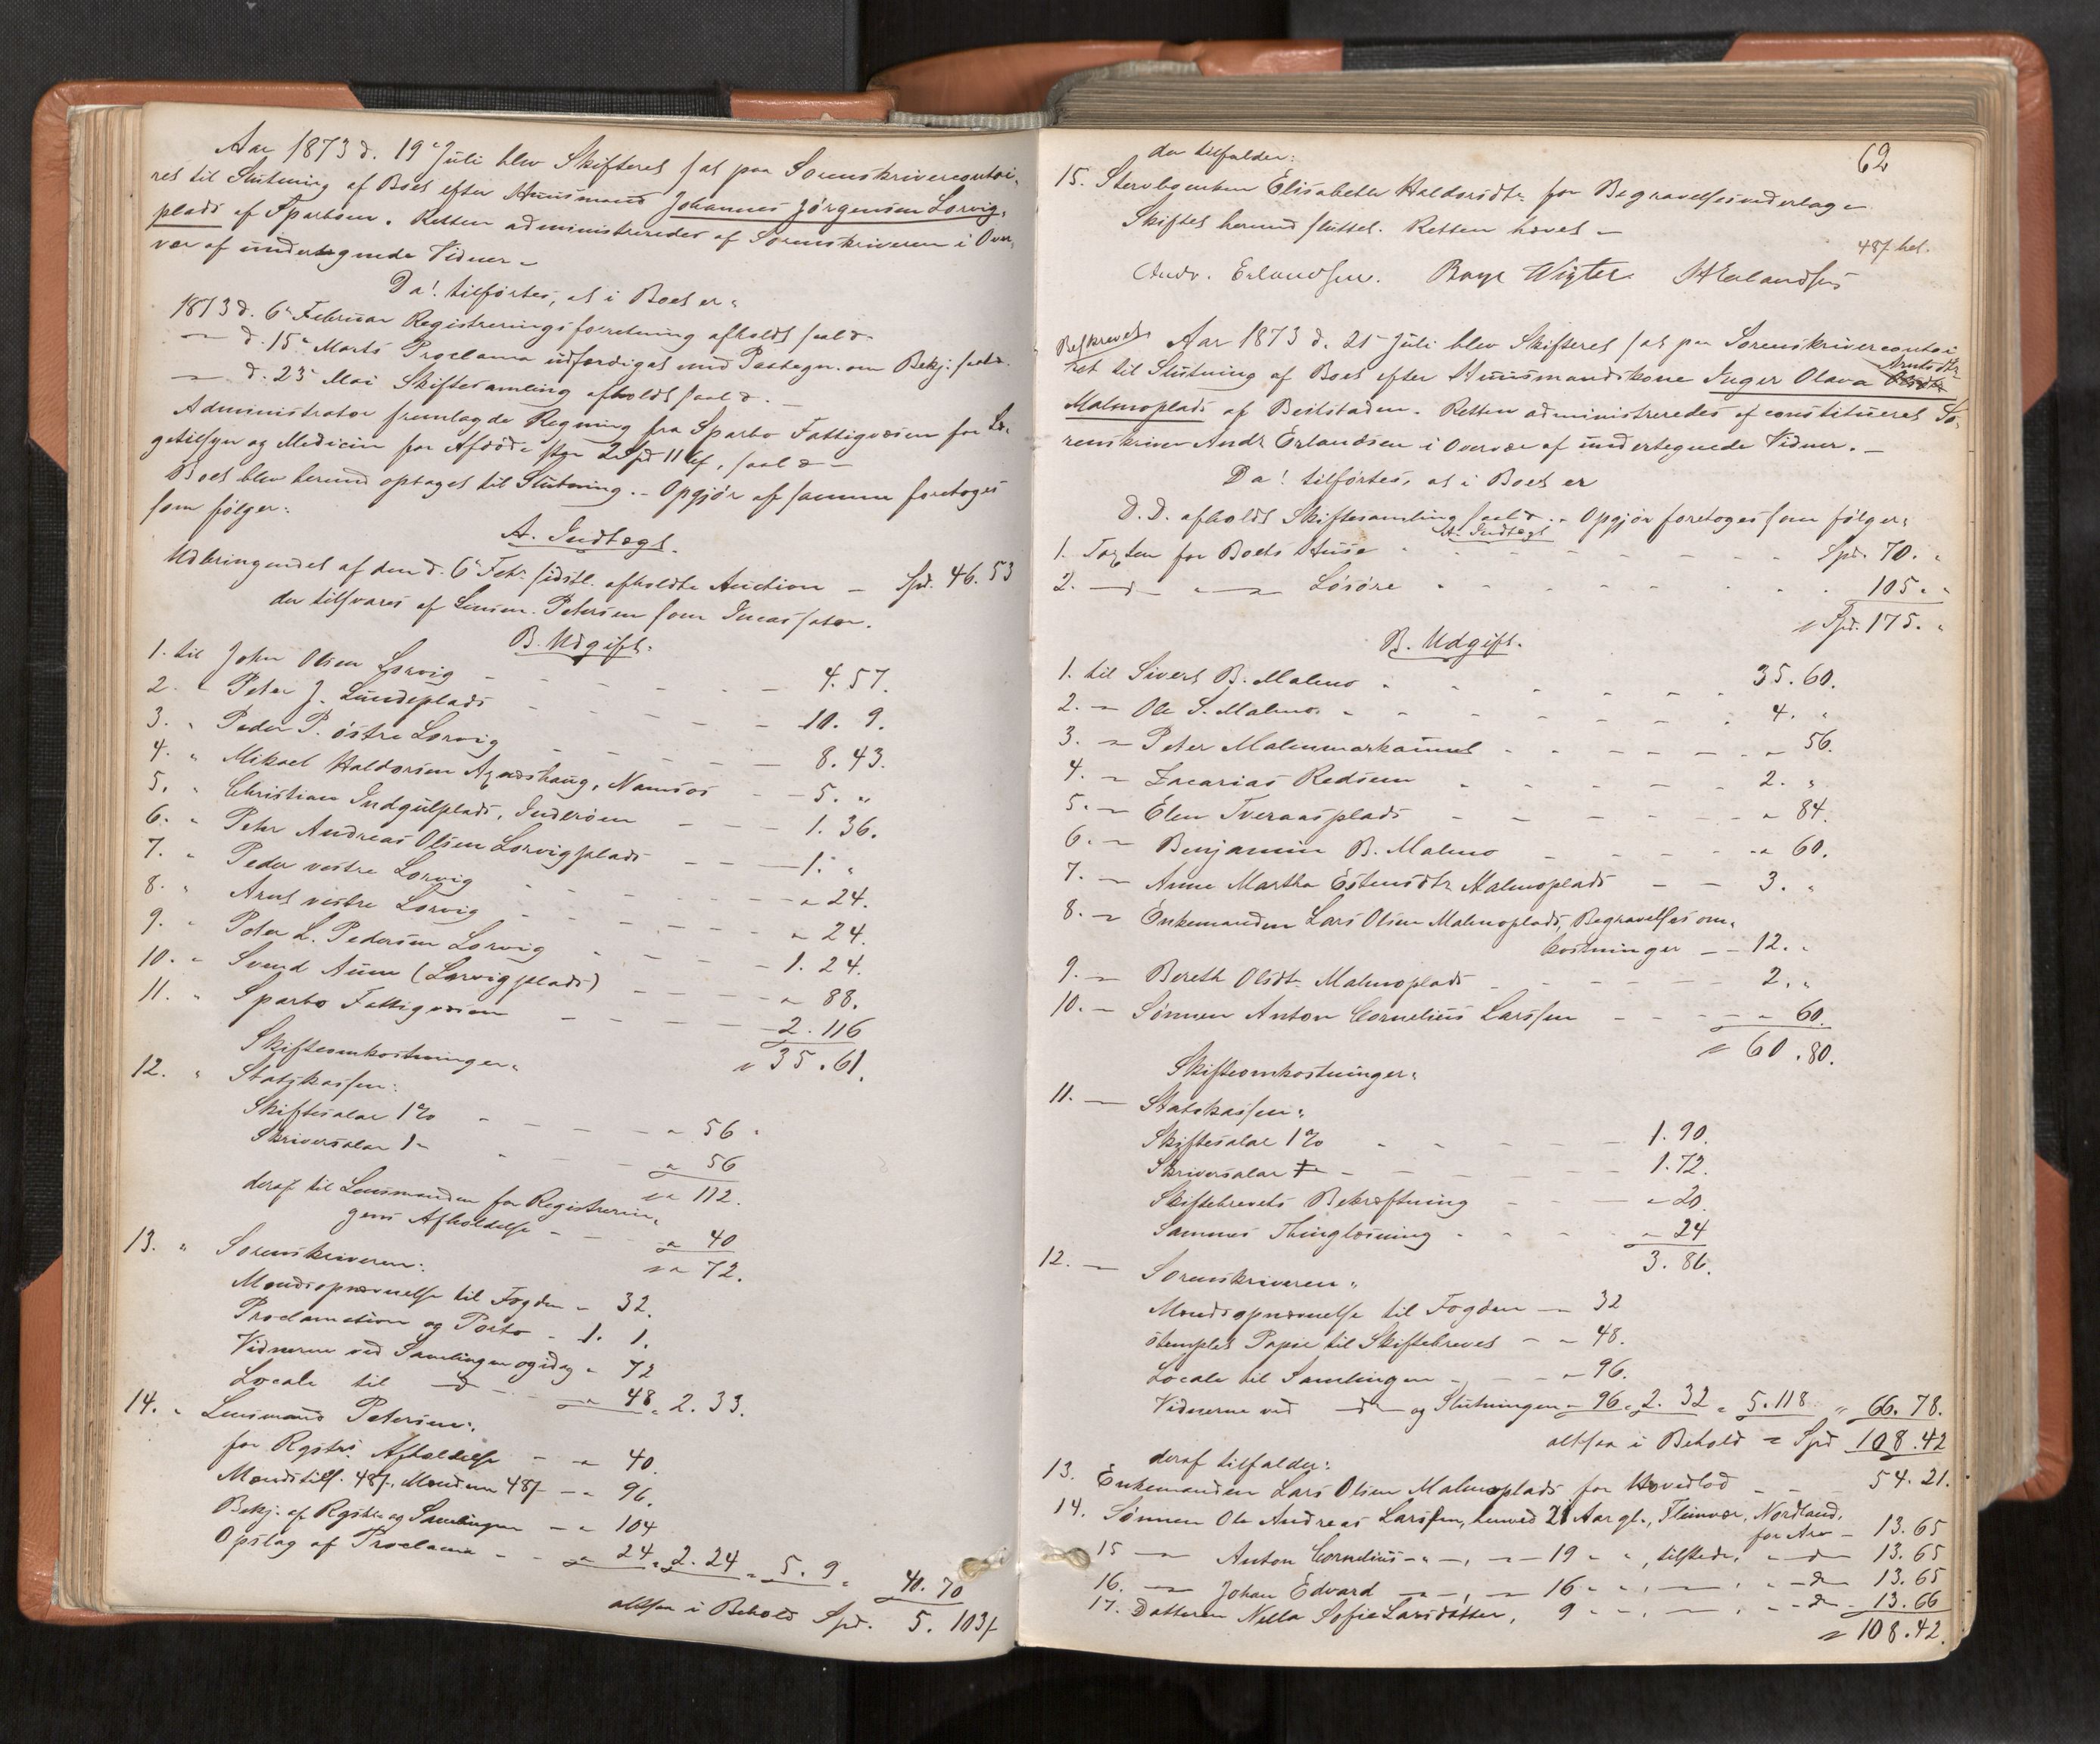 Aar 1873 d. 19de Juli blev Skifteret sat paa Sorenskrivercontoi-
ret til Slutning af Boet efter Huusmand Johannes Jørgensen Lorvig-
plads af Sparboen. Retten administreredes af Sorenskriveren i Over-
vær af undertegnede Vidner.
Da! tilførtes, at i Boet er:
1873 d. 6te Februar Registreringsforretning afholdt saal d.
— d. 15de Marts Proclama udfærdiget med Paategn. om Bekj. saal d.
— d. 23de Mai Skiftesamling afholdt saal d. —
Administrator fremlagde Regning fra Sparbo Fattigvæsen for Læ-
getilsyn og Medicin for Afdøde stor 2 Spd 116 s, saal d —
Boet blev hermed optaget til Slutning. — Opgjør af samme foretoges
som følger:
A. Indtægt.
Udbringendet af den d. 6te Febr. sidstl. afholdte Auction — Spd. 46. 53
der tilsvares af Lensm. Petersen som Incassator.
B. Udgift.
1. til John Olsen Lorvig - - - - 4. 57.
2. " Peter J. Lundeplads - - - - 10. 9.
3. " Peder P. østre Lorvig - - - 8. 43.
4. " Mikael Haldorsen , Namsos - - 5. "
5. " Christian Indgulplads, Inderøen - - - 1. 36.
6. " Peter Andreas Olsen Lorvigplads - - - 1. "
7. " Peder vestre Lorvig - - - - " 24.
8. " Arnt vestre Lorvig - - - - " 24.
9. " Peter L. Pedersen Lorvig - - - - 1. 24.
10. " Svend Aune (Lorvigplads) - - - - " 88.
11. " Sparbo Fattigvæsen - - - - 2. 116
" 35. 61.
Skifteomkostninger.
12. " Statskassen:
Skiftesalær 1 % - - - - " 56
Skriversalær 1 " - - - " 56
" " 112.
deraf til Lensmanden for Registrerin-
gens Afholdelse - - " 40
" " 72.
13. " Sorenskriveren:
Mandsopnævnelse til Fogden " 32.
Proclamation og Porto - 1. 1.
Vidnerne ved Samlingen og idag " 72
Locale til — d — - " 48 " 2. 33.
14. " Lensmand Petersen:
for Rgstrs Afholdelse - - " 40.
Mændstils. 48 s, Mændene 48 s - " 96.
Bekj. af Rgstr. og Samlingen - " 104
Opslag af Proclama - - " 24 " 2. 24 " 5. 9 " 40. 70
altsaa i Behold Spd. 5. 103 s
62
der tilfalder:
15. Stervboenken Elisabeth Haldorsdtr for Begravelsesvederlag.
Skiftet hermed sluttet. Retten hævet —
48 s bet.
Andr. Erlandsen. Erlandsen
Beskrevet
Aar 1873 d. 25de Juli blev Skifteret sat paa Sorenskrivercontoi-
ret til Slutning af Boet efter Huusmandskone Inger Olava Olsdtr Arntsdtr
Malmoplads af Beitstaden. Retten administreredes af constitueret So-
renskriver Andr Erlandsen i Overvær af undertegnede Vidner. —
Da! tilførtes, at i Boet er
D. D. afholdt Skiftesamling saal d. — Opgjør foretoges som følger:
A. Indtægt
1. Taxten for Boets Huse - - - - Spd. 70. "
2. — d — " — Løsøre - - - - 105. "
" Spd. 175. "
B. Udgift.
1. til Sivert B. Malmo - - - - 35. 60.
2. — Ole S. Malmo - - - - 4. "
3. — Peter - - - - " 56.
4. — Zacarias Redsem - - - - 2. "
5. — Elen Tveraasplads - - - - " 84.
6. — Benjamin B. Malmo - - - - " 60.
7. — Anne Martha Estensdtr Malmoplads - - 3. "
8. — Enkemanden Lars Olsen Malmoplads, Begravelsesom-
kostninger - - 12. "
9. — Bereth Olsdtr Malmoplads - - - - 2. "
10. — Sønnen Anton Cornelius Larssen - - - " 60.
" 60. 80.
Skifteomkostninger:
11. — Statskassen:
Skiftesalær 1 % - - - - 1. 90.
Skriversalær - - - - 1. 72.
Skiftebrevets Bekræftning - - - " 20.
Sammes Thinglæsning - - - " 24
3. 86.
12. — Sorenskriveren:
Mandsopnævnelse til Fogden — " 32
stemplet Papir til Skiftebrevet - " 48.
Locale til Samlingen - - - " 96.
Vidnerne ved — d — og Slutningen - 96 " 2. 32 " 5. 118 " 66. 78.
altsaa i Behold = Spd 108. 42
deraf tilfalder:
13. Enkemanden Lars Olsen Malmoplads for Hovedlod - - - 54. 21.
14. Sønnen Ole Andreas Larssen, henved 21 Aar gl., Fleinvær, Nordland,
for Arv - 13. 65
15 — Anton Cornelius — " —, — 19 — " , tilstede, " — d — 13. 65
16. — Johan Edvard — " —, — 16 " " , — , " — d — 13. 65
17. Datteren Nella Sofie Larsdatter, 9 " " , — , " — d — 13. 66
" 108. 42.